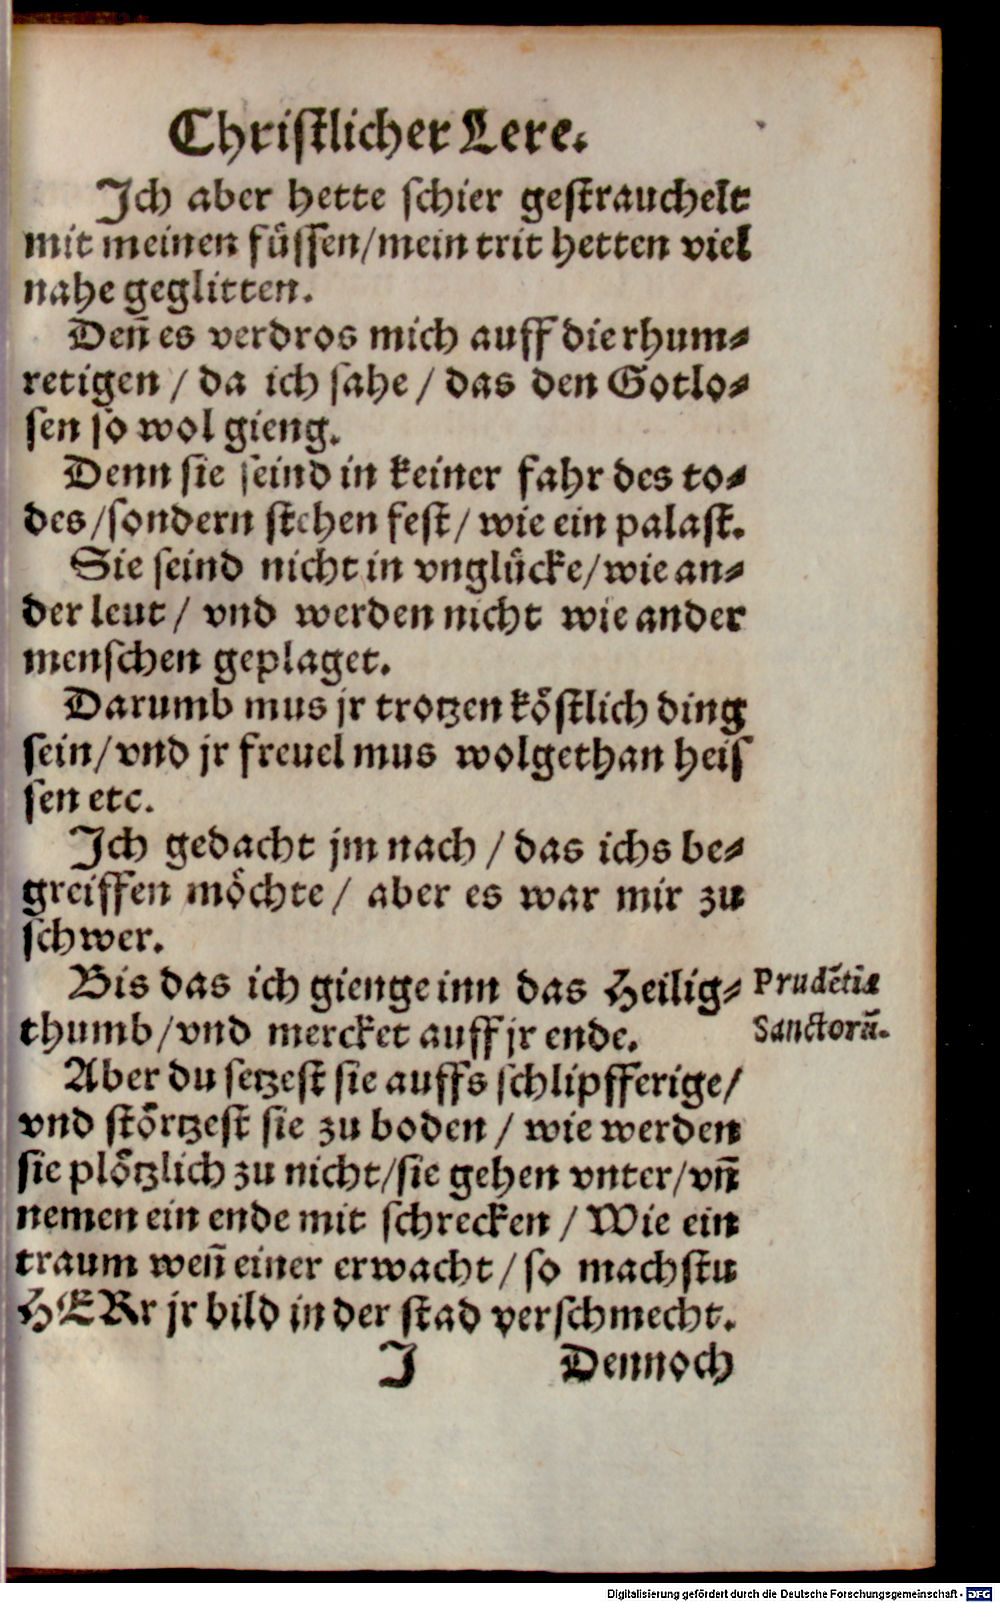 Christlicher Lere.
Ich aber hette schier gestrauchelt
mit meinen fuͤssen/mein trit hetten viel
nahe geglitten.
Den̄ es verdros mich auff die rhum⸗
retigen / da ich sahe / das den Gotlo⸗
sen so wol gieng.
Denn sie seind in keiner fahr des to⸗
des/sondern stehen fest/ wie ein palast.
Sie seind nicht in vngluͤcke/wie an⸗
der leut / vnd werden nicht wie ander
menschen geplaget.
Darumb mus jr trotzen koͤstlich ding
sein/vnd jr freuel mus wolgethan heis
sen etc.
Ich gedacht jm nach / das ichs be⸗
greiffen moͤchte / aber es war mir zu
schwer.
Bis das ich gienge inn das Heilig⸗
thumb/vnd mercket auff jr ende.
Prudētia
Sanctorū.
Aber du setzest sie auffs schlipfferige/
vnd stoͤrtzest sie zu boden / wie werden
sie ploͤtzlich zu nicht/sie gehen vnter/vn̄
nemen ein ende mit schrecken / Wie ein
traum wen̄ einer erwacht / so machstu
HERr jr bild in der stad verschmecht.
I Dennoch
Digitalisierung gefördert durch die Deutsche Forschungsgemeinschaft - DFG